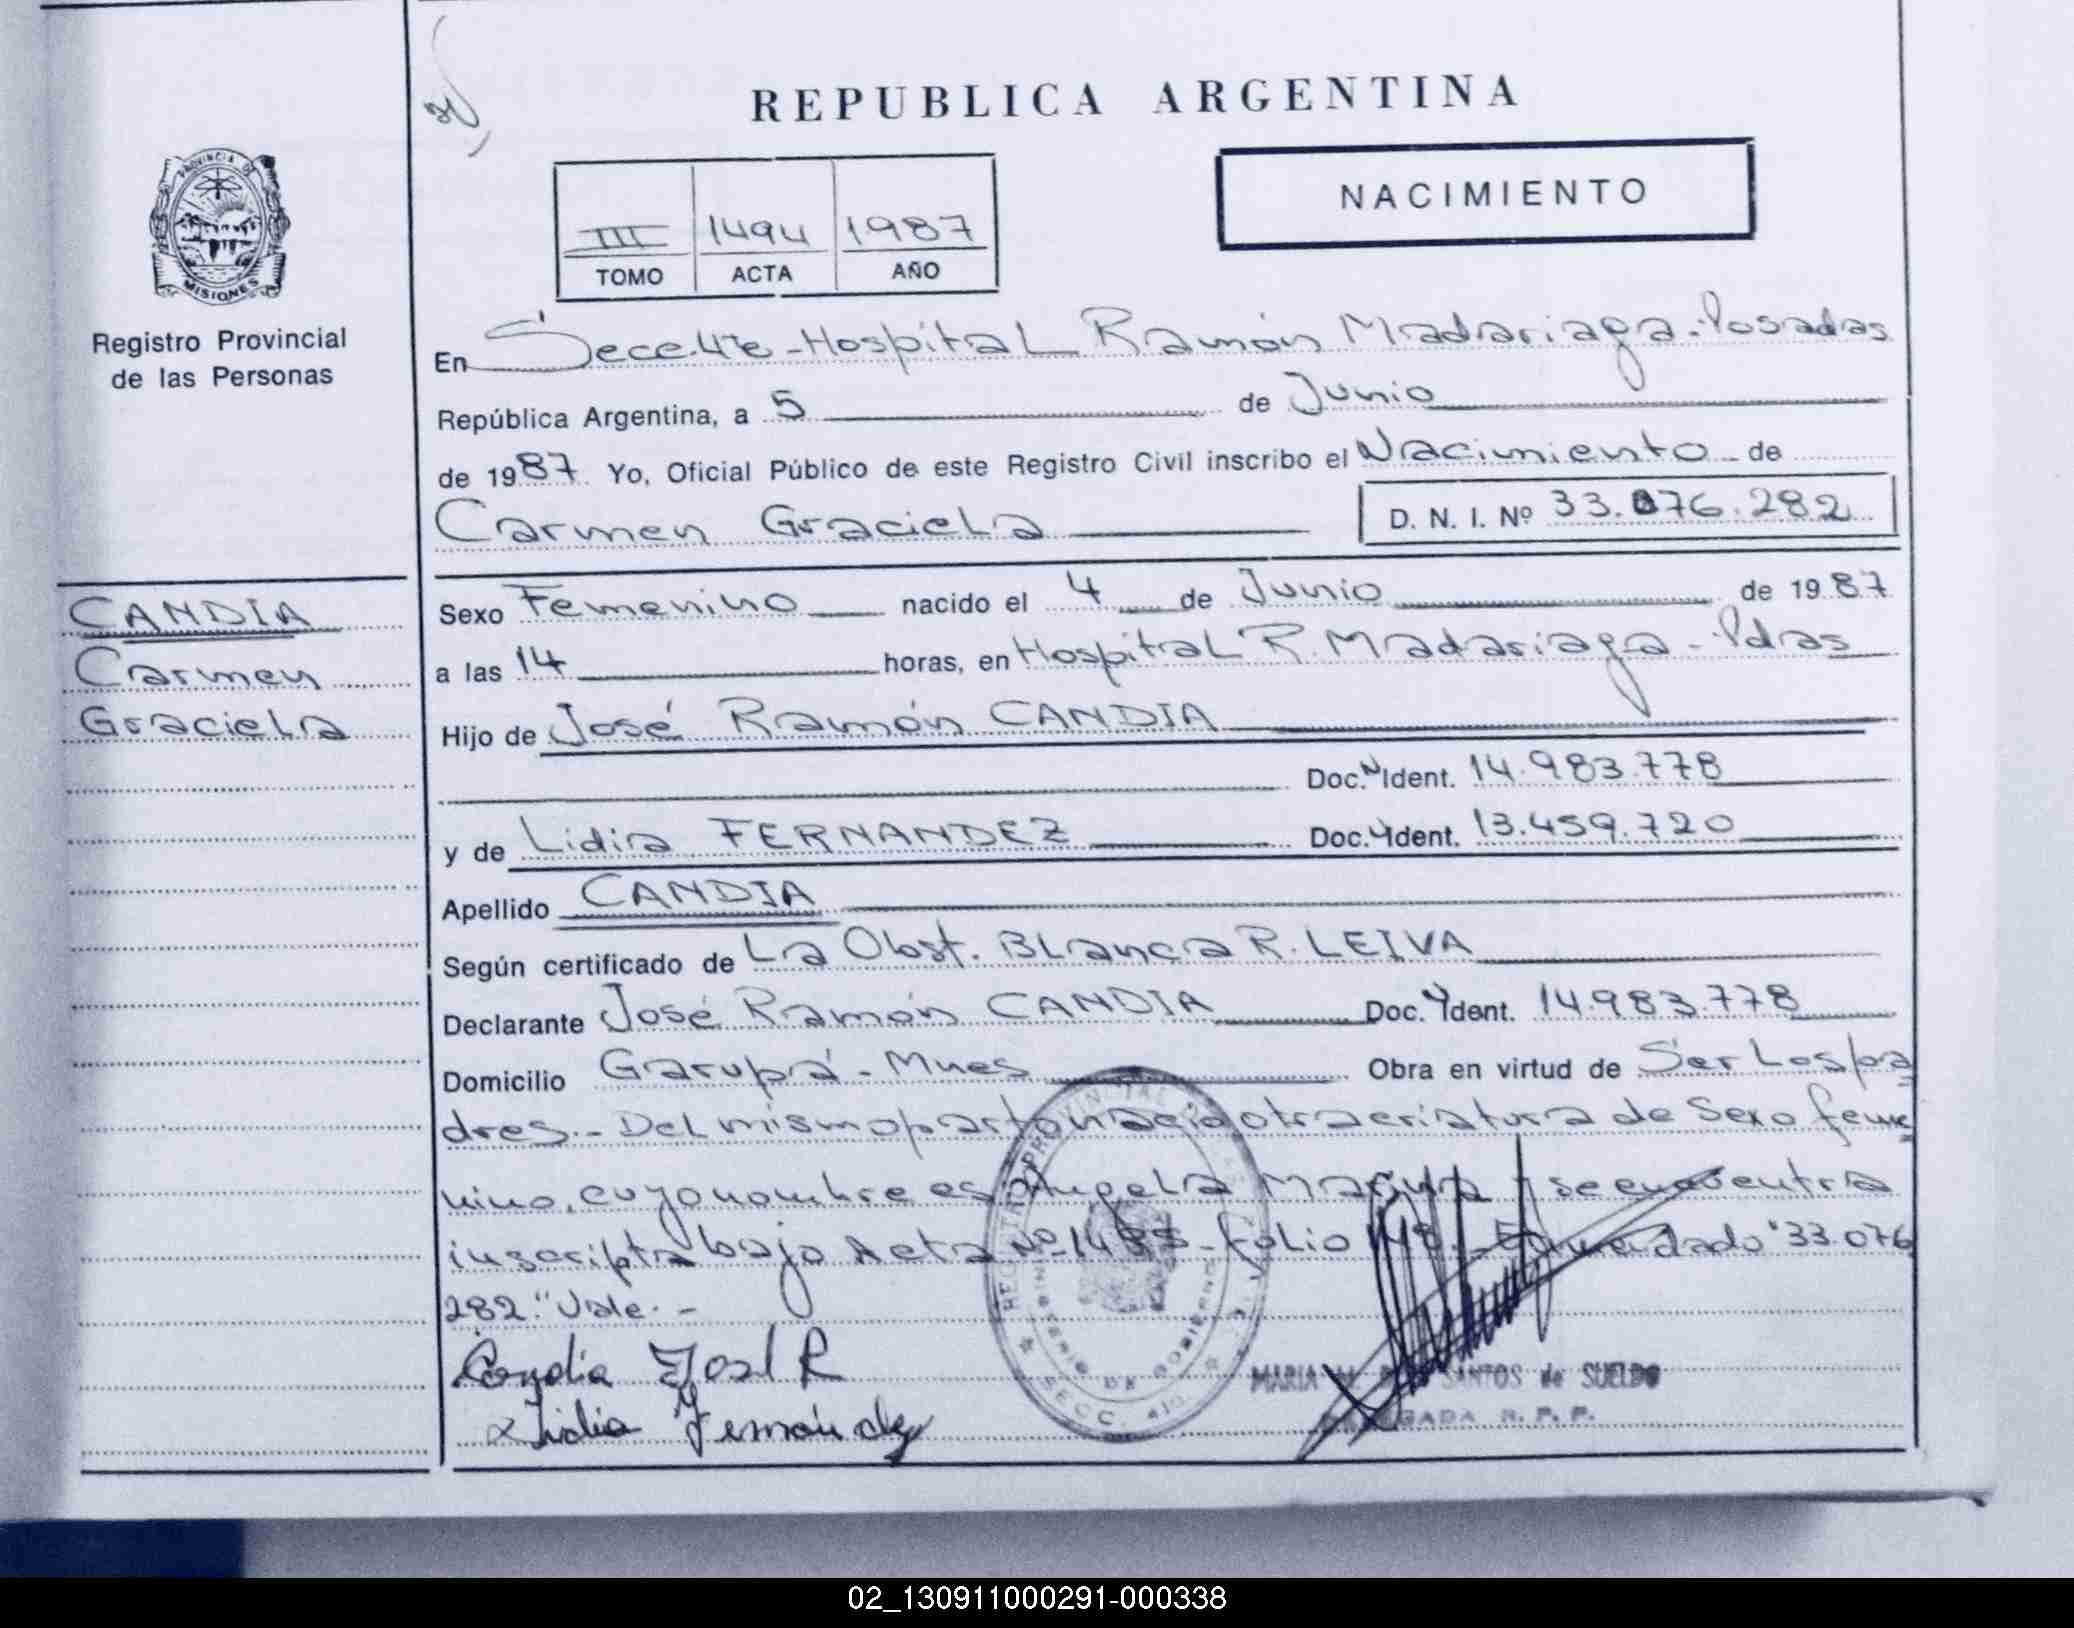 REPUBLICA ARGENTINA
NACIMIENTO
III 1494 1987
TOMO ACTA AÑO
PROVINCIA DE
MISIONES
Registro Provincial
de las Personas
CANDIA
Carmen
Graciela
En Secc. 4ta - Hospital Ramón Madariaga - Posadas
República Argentina, a 5 de Junio
de 1987. Yo, Oficial Público de este Registro Civil inscribo el Nacimiento de
Carmen Graciela D. N. I. Nº 33.076.282
Sexo Femenino nacido el 4 de Junio de 1987
a las 14 horas, en Hospital R. Madariaga - Pdas
Hijo de José Ramón CANDIA
Doc. Ident. 14.983.778
y de Lidia FERNANDEZ Doc. Ident. 13.459.720
Apellido CANDIA
Según certificado de La Obst. Blanca R. LEIVA
Declarante José Ramón CANDIA Doc. Ident. 14.983.778
Domicilio Garupá - Mnes Obra en virtud de Ser Los pa
dres. - Del mismo parto nació otra criatura de Sexo feme
nino, cuyo nombre es Angela y se encuentra
inscripta bajo Acta Nº Folio Enmendado "33.076
282" Vale. -
Candia José R
Lidia Fernández
REGISTRO PROVINCIAL
MINISTERIO DE GOBIERNO
SECC.
MARIA SANTOS de SUELDO
R. P. P.
02_130911000291-000338